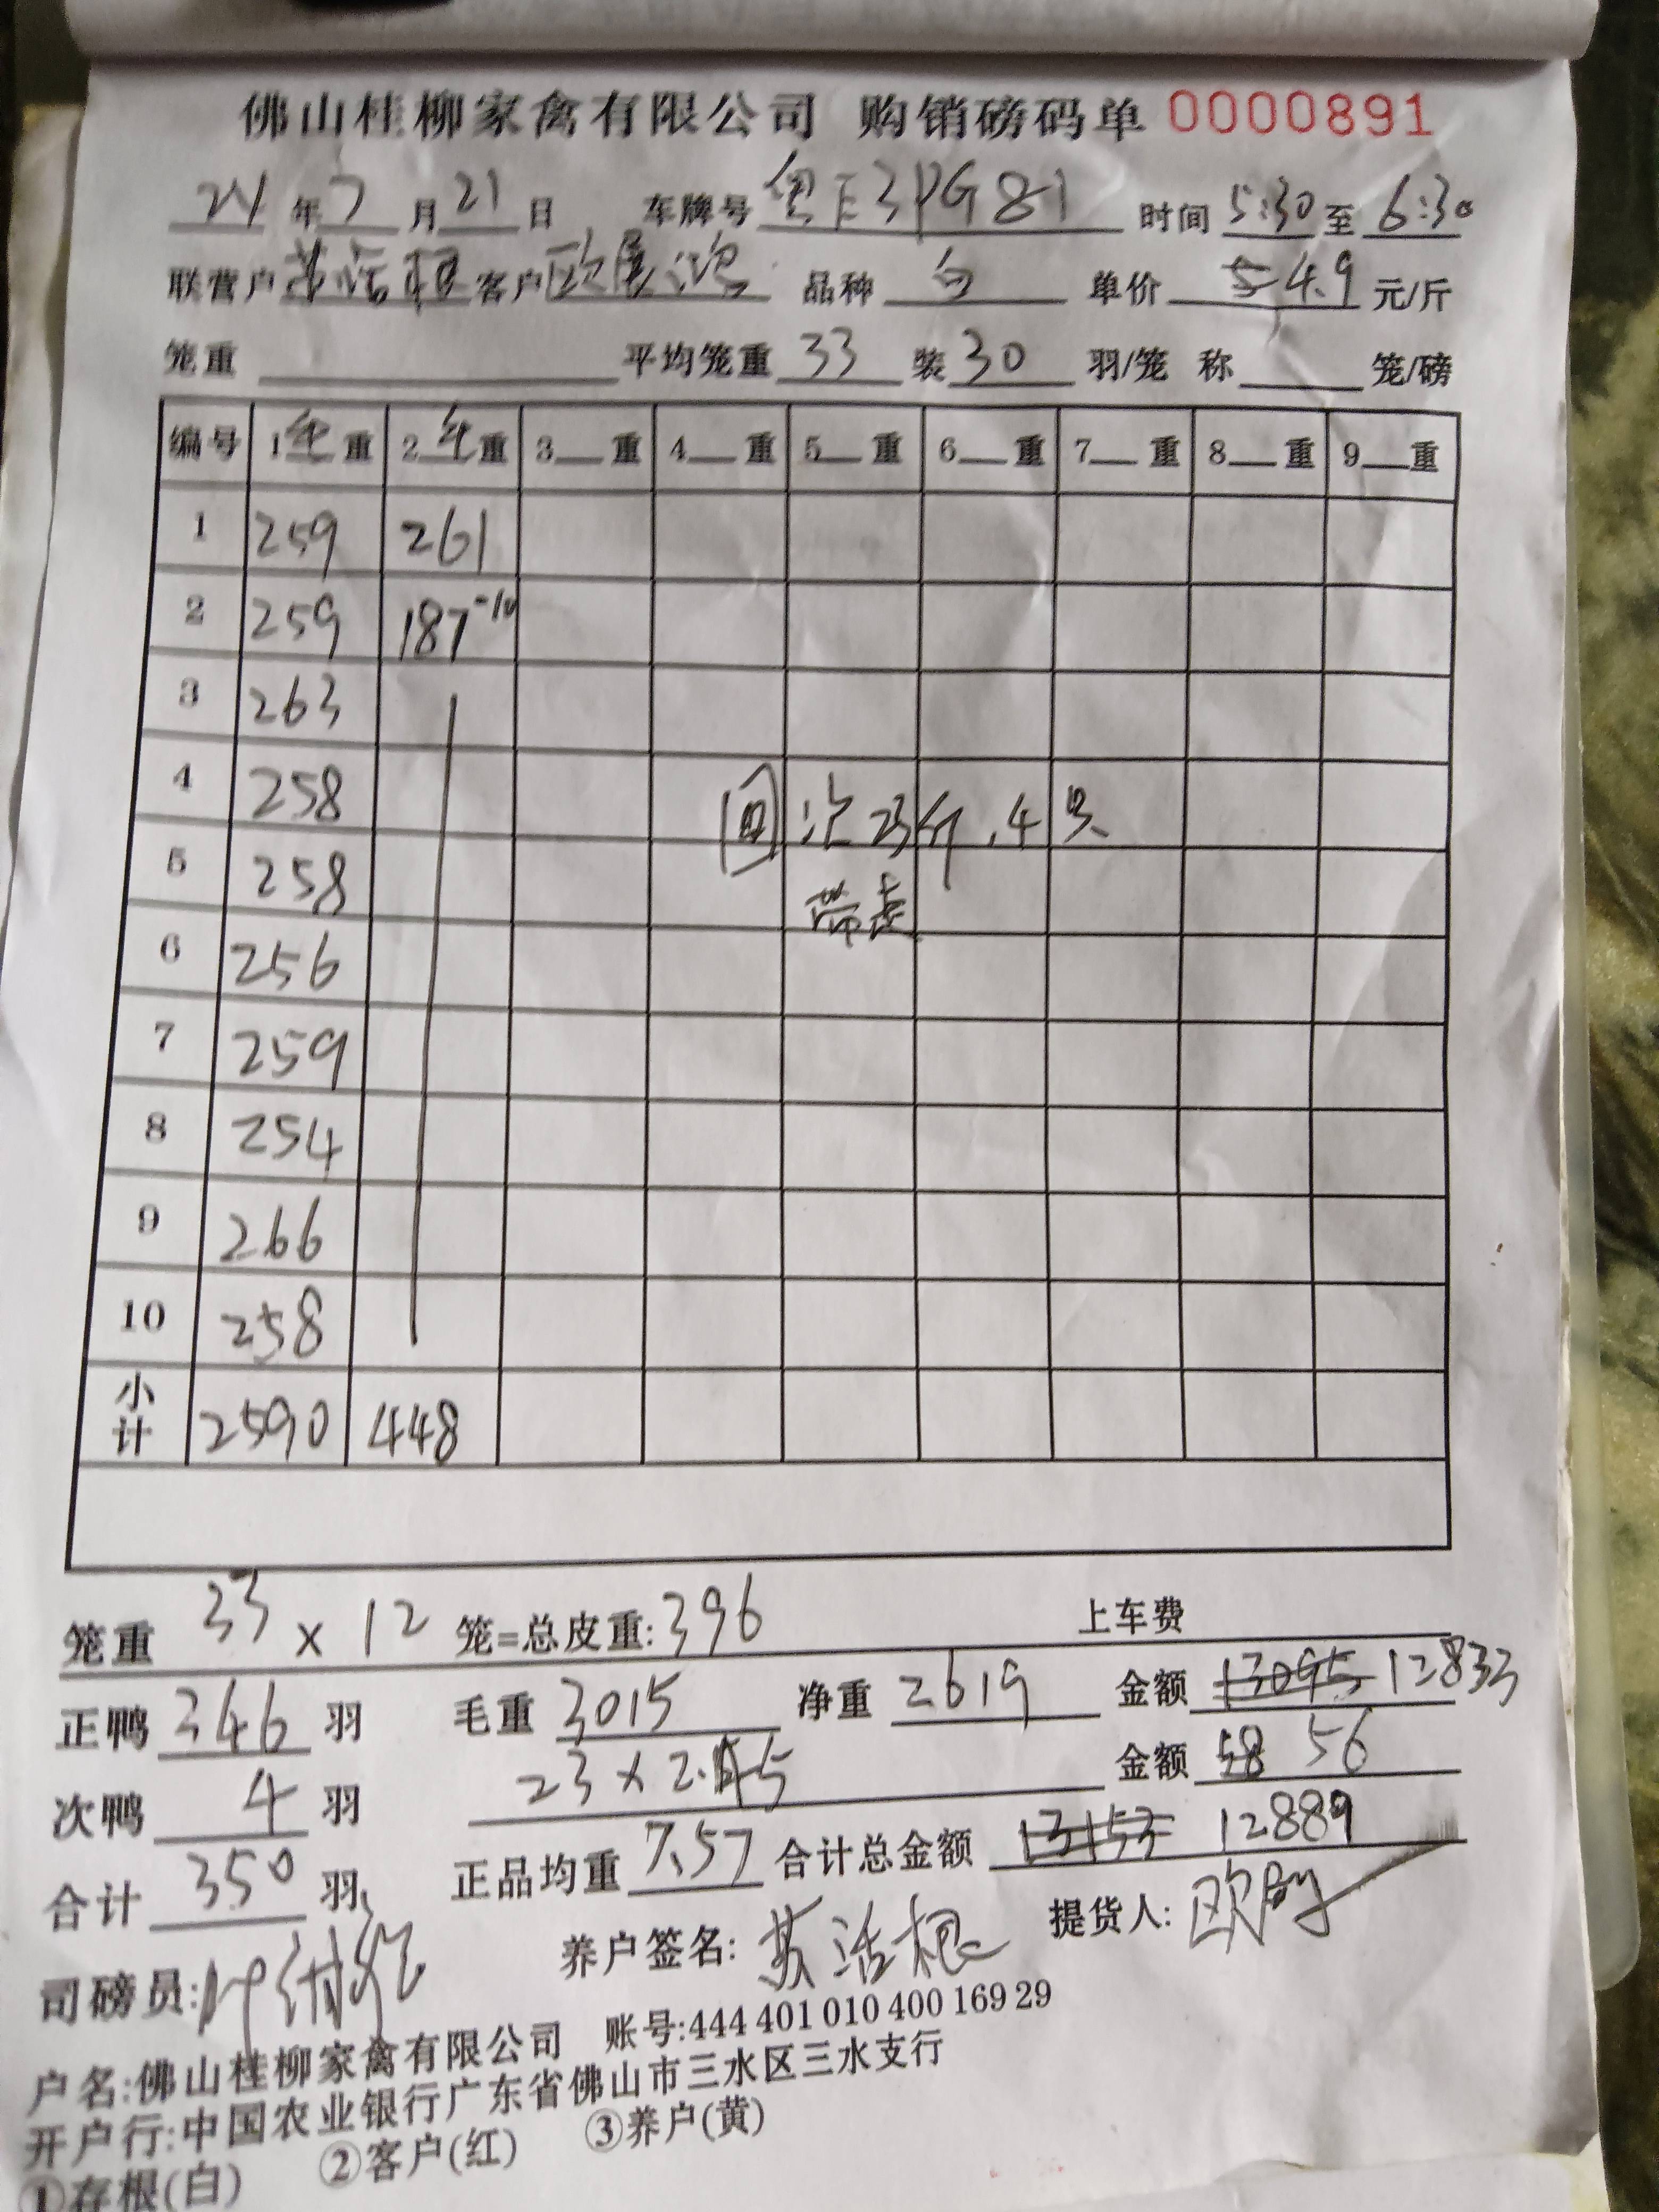 佛山桂柳家禽有限公司 购销磅码单 0000891
24 年 7 月 21 日 车牌号 粤E3PG81 时间 5:30 至 6:30
联营户 苏活根 客户 欧展鸿 品种 白 单价 5 4.9 元/斤
笼重 平均笼重 33 装 30 羽/笼 称 笼/磅
编号 1 年 重 2 年 重 3 重 4 重 5 重 6 重 7 重 8 重 9 重
1 259 261
2 259 187-10
3 263
4 258
回 23斤.4只
5 258
带走
6 256
7 259
8 254
9 266
10 258
小计 2590 448
笼重 33 x 12 笼=总皮重: 396 上车费
正鸭 346 羽 毛重 3015 净重 2619 金额 13095 12833
次鸭 4 羽 23 x 2.45 金额 58 56
合计 350 羽 正品均重 7.57 合计总金额 13153 12889
司磅员: 养户签名: 苏活根 提货人: 欧
户名:佛山桂柳家禽有限公司 账号:444 401 010 400 169 29
开户行:中国农业银行广东省佛山市三水区三水支行
①存根(白) ②客户(红) ③养户(黄)